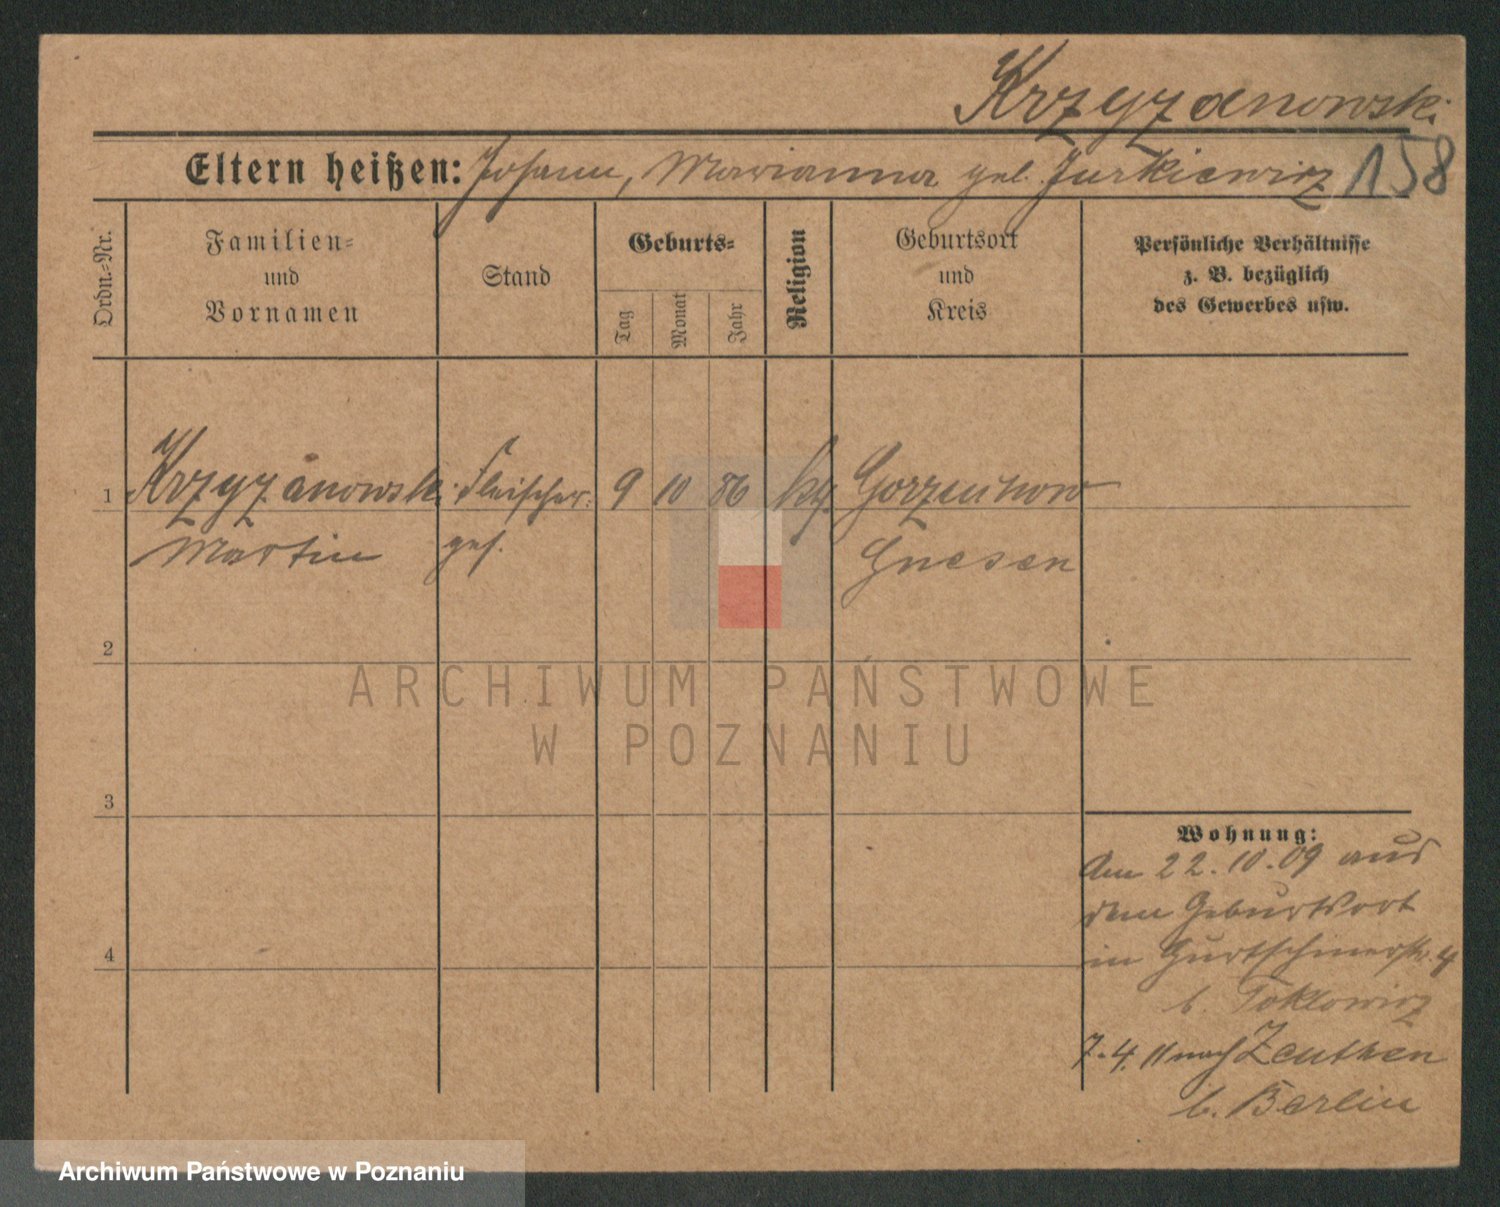 Krzyzanowski
Eltern heißen: Johann, Marianna geb. Jurkiewicz 158
Ordn.-Nr.
Familien-
und
Vornamen
Stand
Geburts-
Tag
Monat
Jahr
Religion
Geburtsort
und
Kreis
Persönliche Verhältnisse
z. B. bezüglich
des Gewerbes usw.
1 Krzyzanowski Fleischer- 9 10 86 kth.
Martin ges. Gnesen
2
ARCHIWUM PAŃSTWOWE
W POZNANIU
3
Wohnung:
Am 22.10.09 aus
dem Geburtsort
in 4
b.
7.4.11 nach Zeuthen
b. Berlin
4
Archiwum Państwowe w Poznaniu